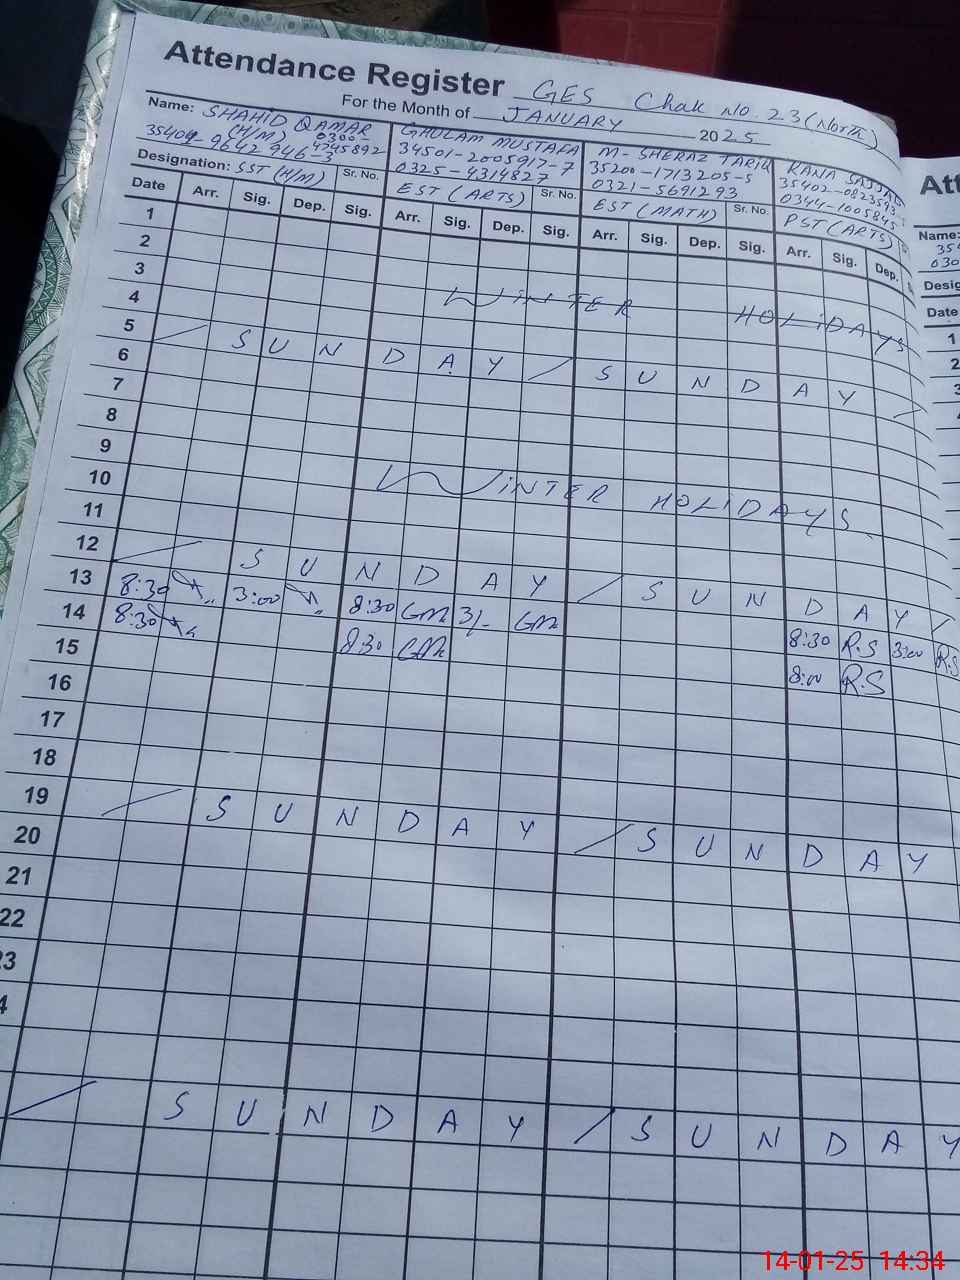 Attendance Register GES Chak No. 23 (North)
For the Month of JANUARY 2025
Name: SHAHID QAMAR
(H/M) 0300-
35404-9642946-3 4745892
Designation: SST (H/M) Sr. No.
GHULAM MUSTAFA
34501-2005917-7
0325-4314827
EST (ARTS) Sr. No.
M. SHERAZ TARIQ
35200-1713205-5
0321-5691293
EST (MATH) Sr. No.
RANA SAJJAD
35402-0823593-
0344-1005845
PST (ARTS)
Date Arr. Sig. Dep. Sig. Arr. Sig. Dep. Sig. Arr. Sig. Dep. Sig. Arr. Sig. Dep.
1
2
3
4 WINTER HOLIDAYS
5 / SUNDAY / SUNDAY /
6
7
8
9
10 WINTER HOLIDAYS
11
12 / SUNDAY / SUNDAY /
13 8:30 3:00 8:30 GM 3/- GM 8:30 R.S 3:00 R.S
14 8:30 8:30 GM 8:00 R.S
15
16
17
18
19 / SUNDAY / SUNDAY
20
21
22
23
4
/ SUNDAY / SUNDAY
Att
Name:
354
030
Desig
Date
1
2
3
4
5
6
7
8
9
10
11
14-01-25 14:34